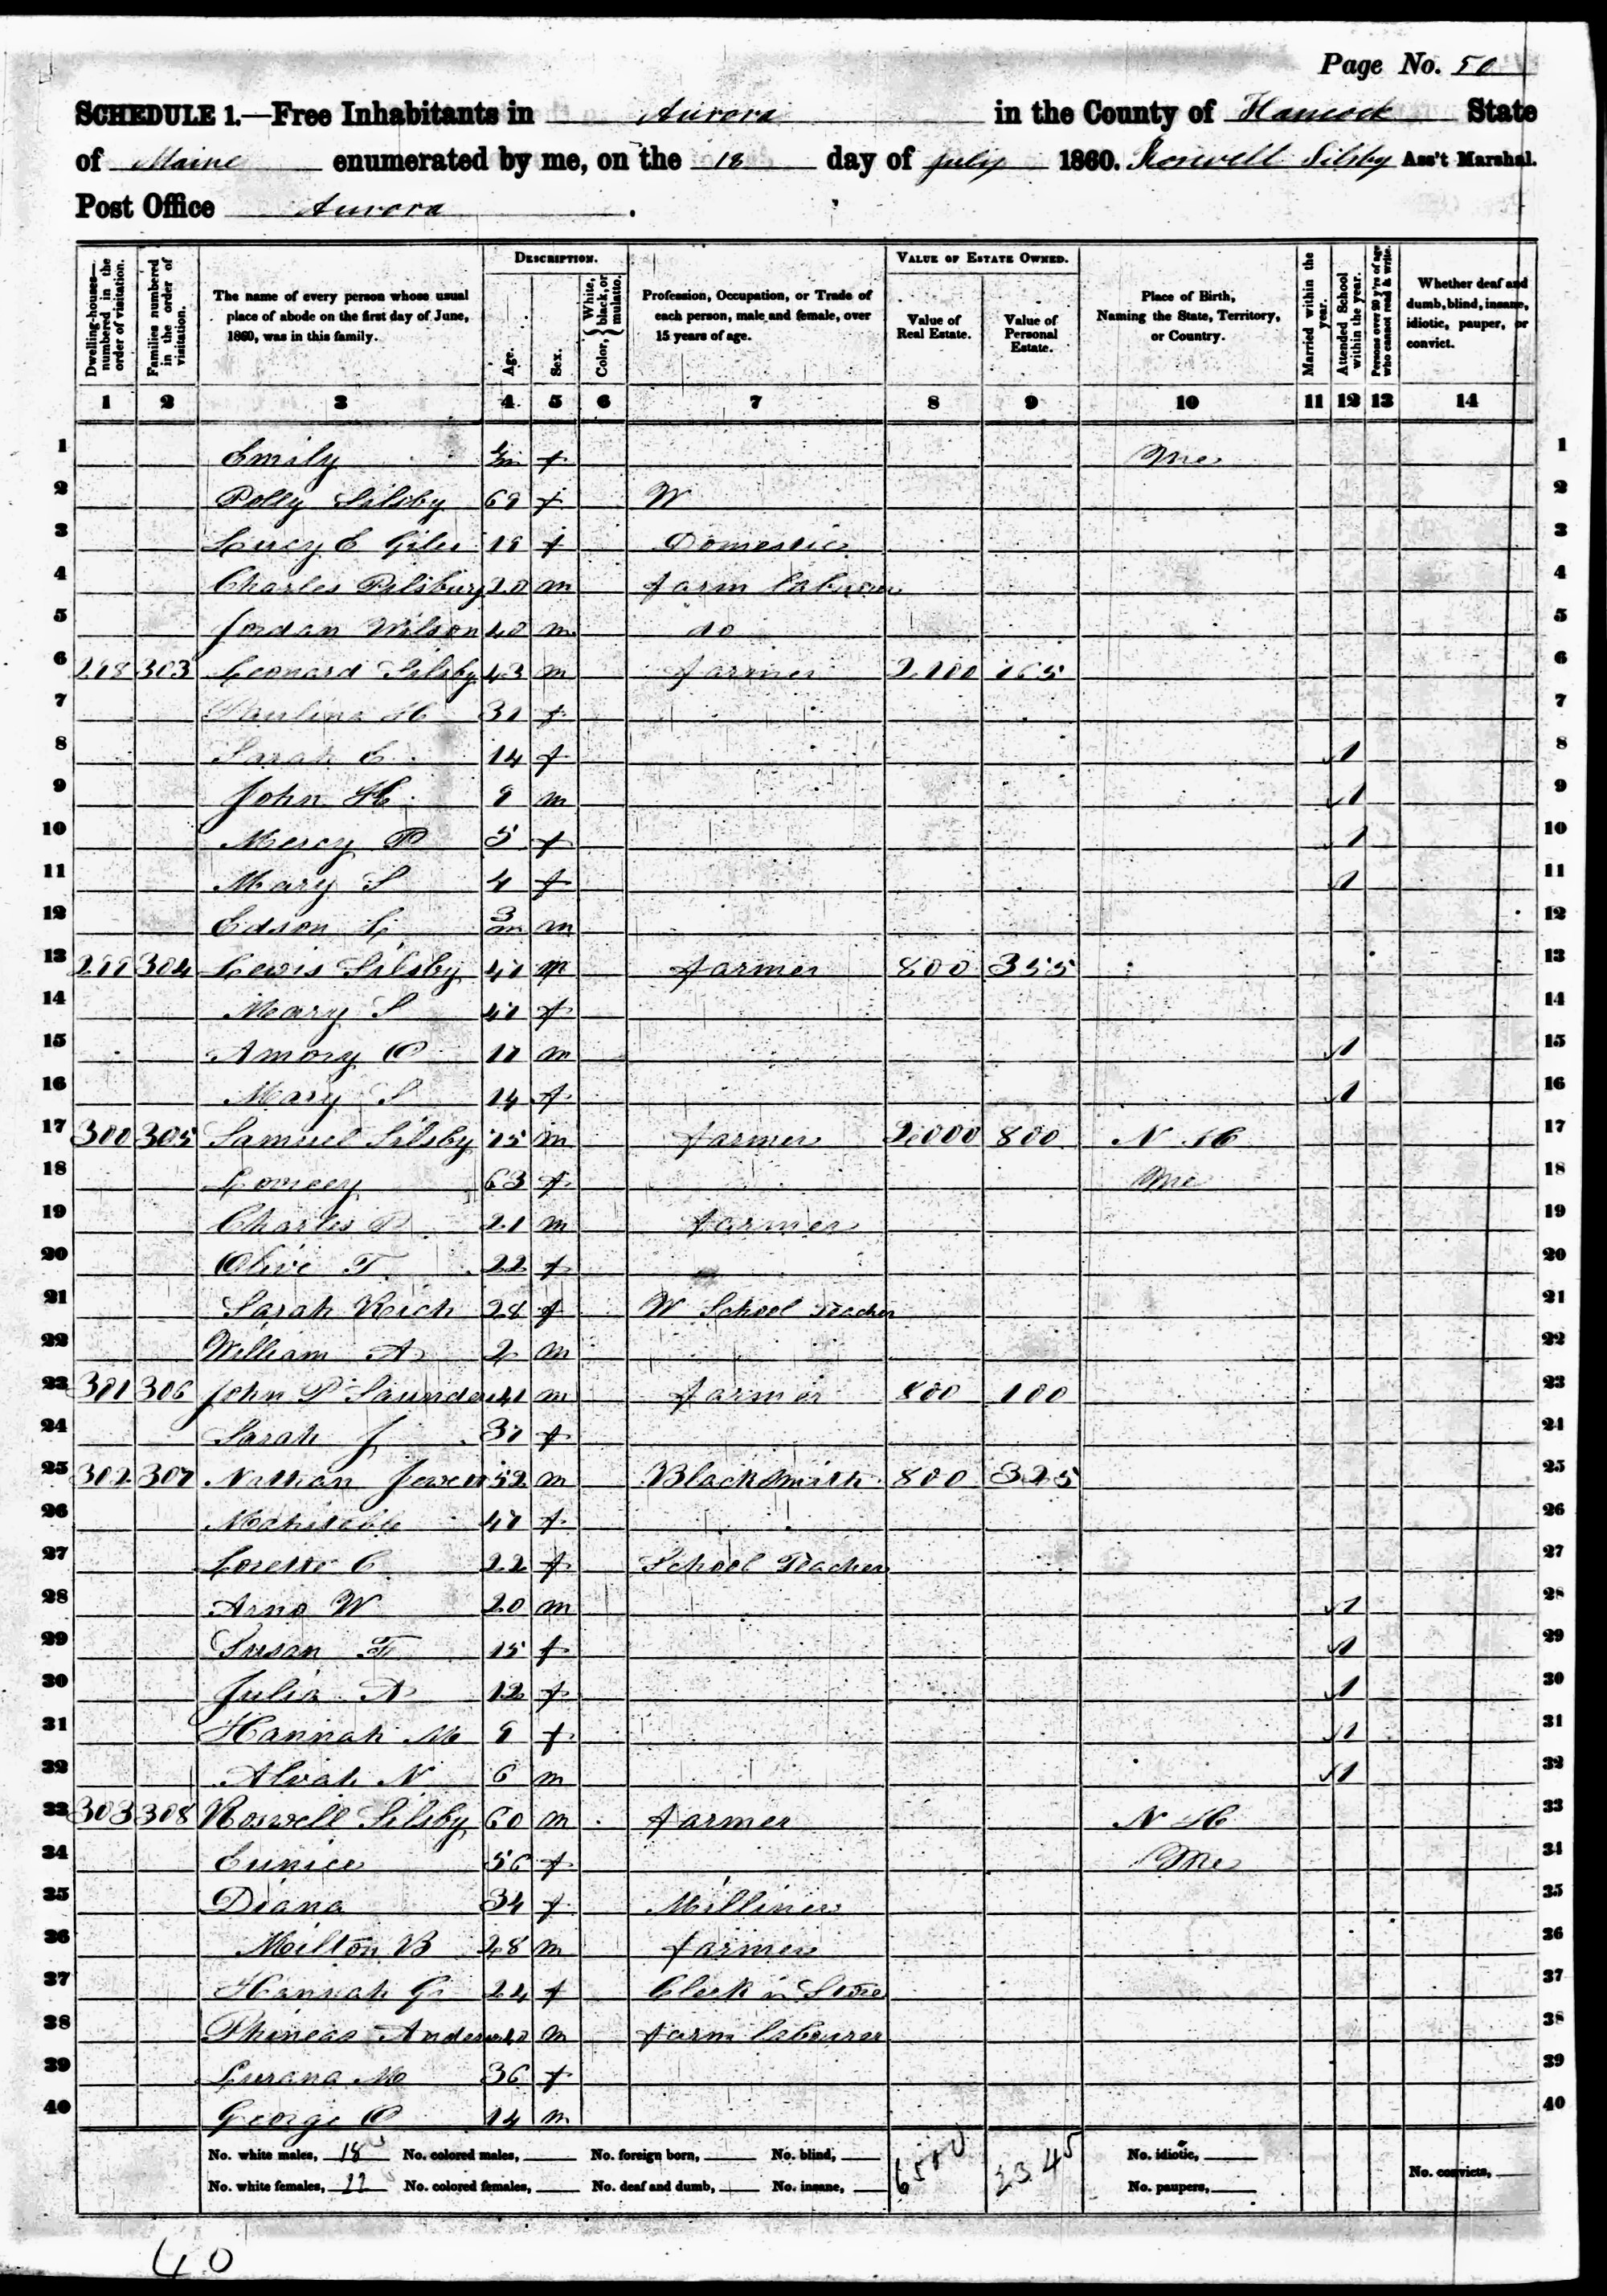 Page No. 50
SCHEDULE 1.—Free Inhabitants in Aurora in the County of Hancock State
of Maine enumerated by me, on the 18 day of July 1860. Roswell Silsby Ass't Marshal.
Post Office Aurora.
Dwelling-houses—numbered in the order of visitation.
Families numbered in the order of visitation.
The name of every person whose usual place of abode on the first day of June, 1860, was in this family.
DESCRIPTION.
Age.
Sex.
Color, { White, black, or mulatto.
Profession, Occupation, or Trade of each person, male and female, over 15 years of age.
VALUE OF ESTATE OWNED.
Value of Real Estate.
Value of Personal Estate.
Place of Birth, Naming the State, Territory, or Country.
Married within the year.
Attended School within the year.
Persons over 20 y'rs of age who cannot read & write.
Whether deaf and dumb, blind, insane, idiotic, pauper, or convict.
1 2 3 4 5 6 7 8 9 10 11 12 13 14
1 Emily f Me 1
2 Polly Silsby 69 f W 2
3 Lucy E Giles 19 f Domestic 3
4 Charles Pilsbury 20 m farm labourer 4
5 Jordan Wilson 40 m do 5
6 298 303 Leonard Silsby 43 m farmer 2,100 165 6
7 Paulina H 31 f 7
8 Sarah E 14 f 1 8
9 John H 9 m 1 9
10 Mercy P 5 f 1 10
11 Mary S 4 f 1 11
12 Edson L 3/m m 12
13 299 304 Lewis Silsby 47 m farmer 800 355 13
14 Mary S 47 f 14
15 Amory O 17 m 1 15
16 Mary S 14 f 1 16
17 300 305 Samuel Silsby 75 m farmer 2,000 800 N H 17
18 63 f Me 18
19 Charles P 21 m farmer 19
20 Olive T 22 f 20
21 Sarah Rich 28 f W School Teacher 21
22 William A 2 m 22
23 301 306 John P Saunders 41 m farmer 800 100 23
24 Sarah J 37 f 24
25 302 307 Nathan Jewett 52 m Blacksmith 800 325 25
26 Mehitable 47 f 26
27 Lorette C 22 f School Teacher 27
28 Arno W 20 m 1 28
29 Susan F 15 f 1 29
30 Julia A 12 f 1 30
31 Hannah M 9 f 1 31
32 Alvah N 6 m 1 32
33 303 308 Roswell Silsby 60 m farmer N H 33
34 Eunice 56 f Me 34
35 Diana 34 f Milliner 35
36 Milton B 28 m farmer 36
37 Hannah G 24 f Clerk in Store 37
38 Phineas m farm labourer 38
39 Lurana M 36 f 39
40 George O 14 m 40
No. white males, 18 No. colored males, No. foreign born, No. blind, 6500 2345 No. idiotic,
No. white females, 22 No. colored females, No. deaf and dumb, No. insane, No. paupers, No. convicts,
40